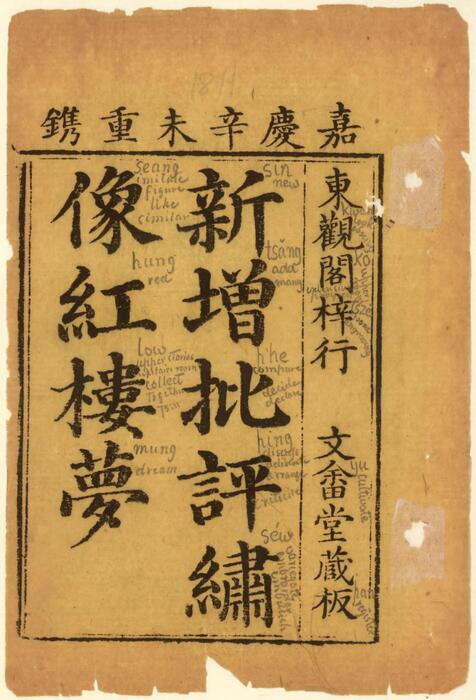 1811
嘉慶辛未重鐫
東觀閣梓行
文畬堂藏板
新增批評繡
像紅樓夢
sin
new
tsăng
add
h'he
compare
decide
declare
hing
criticise
séw
seang
imitate
figure
like
similar
hung
red
low
upper stories
collect
together
mung
dream
yu
cultivate
register